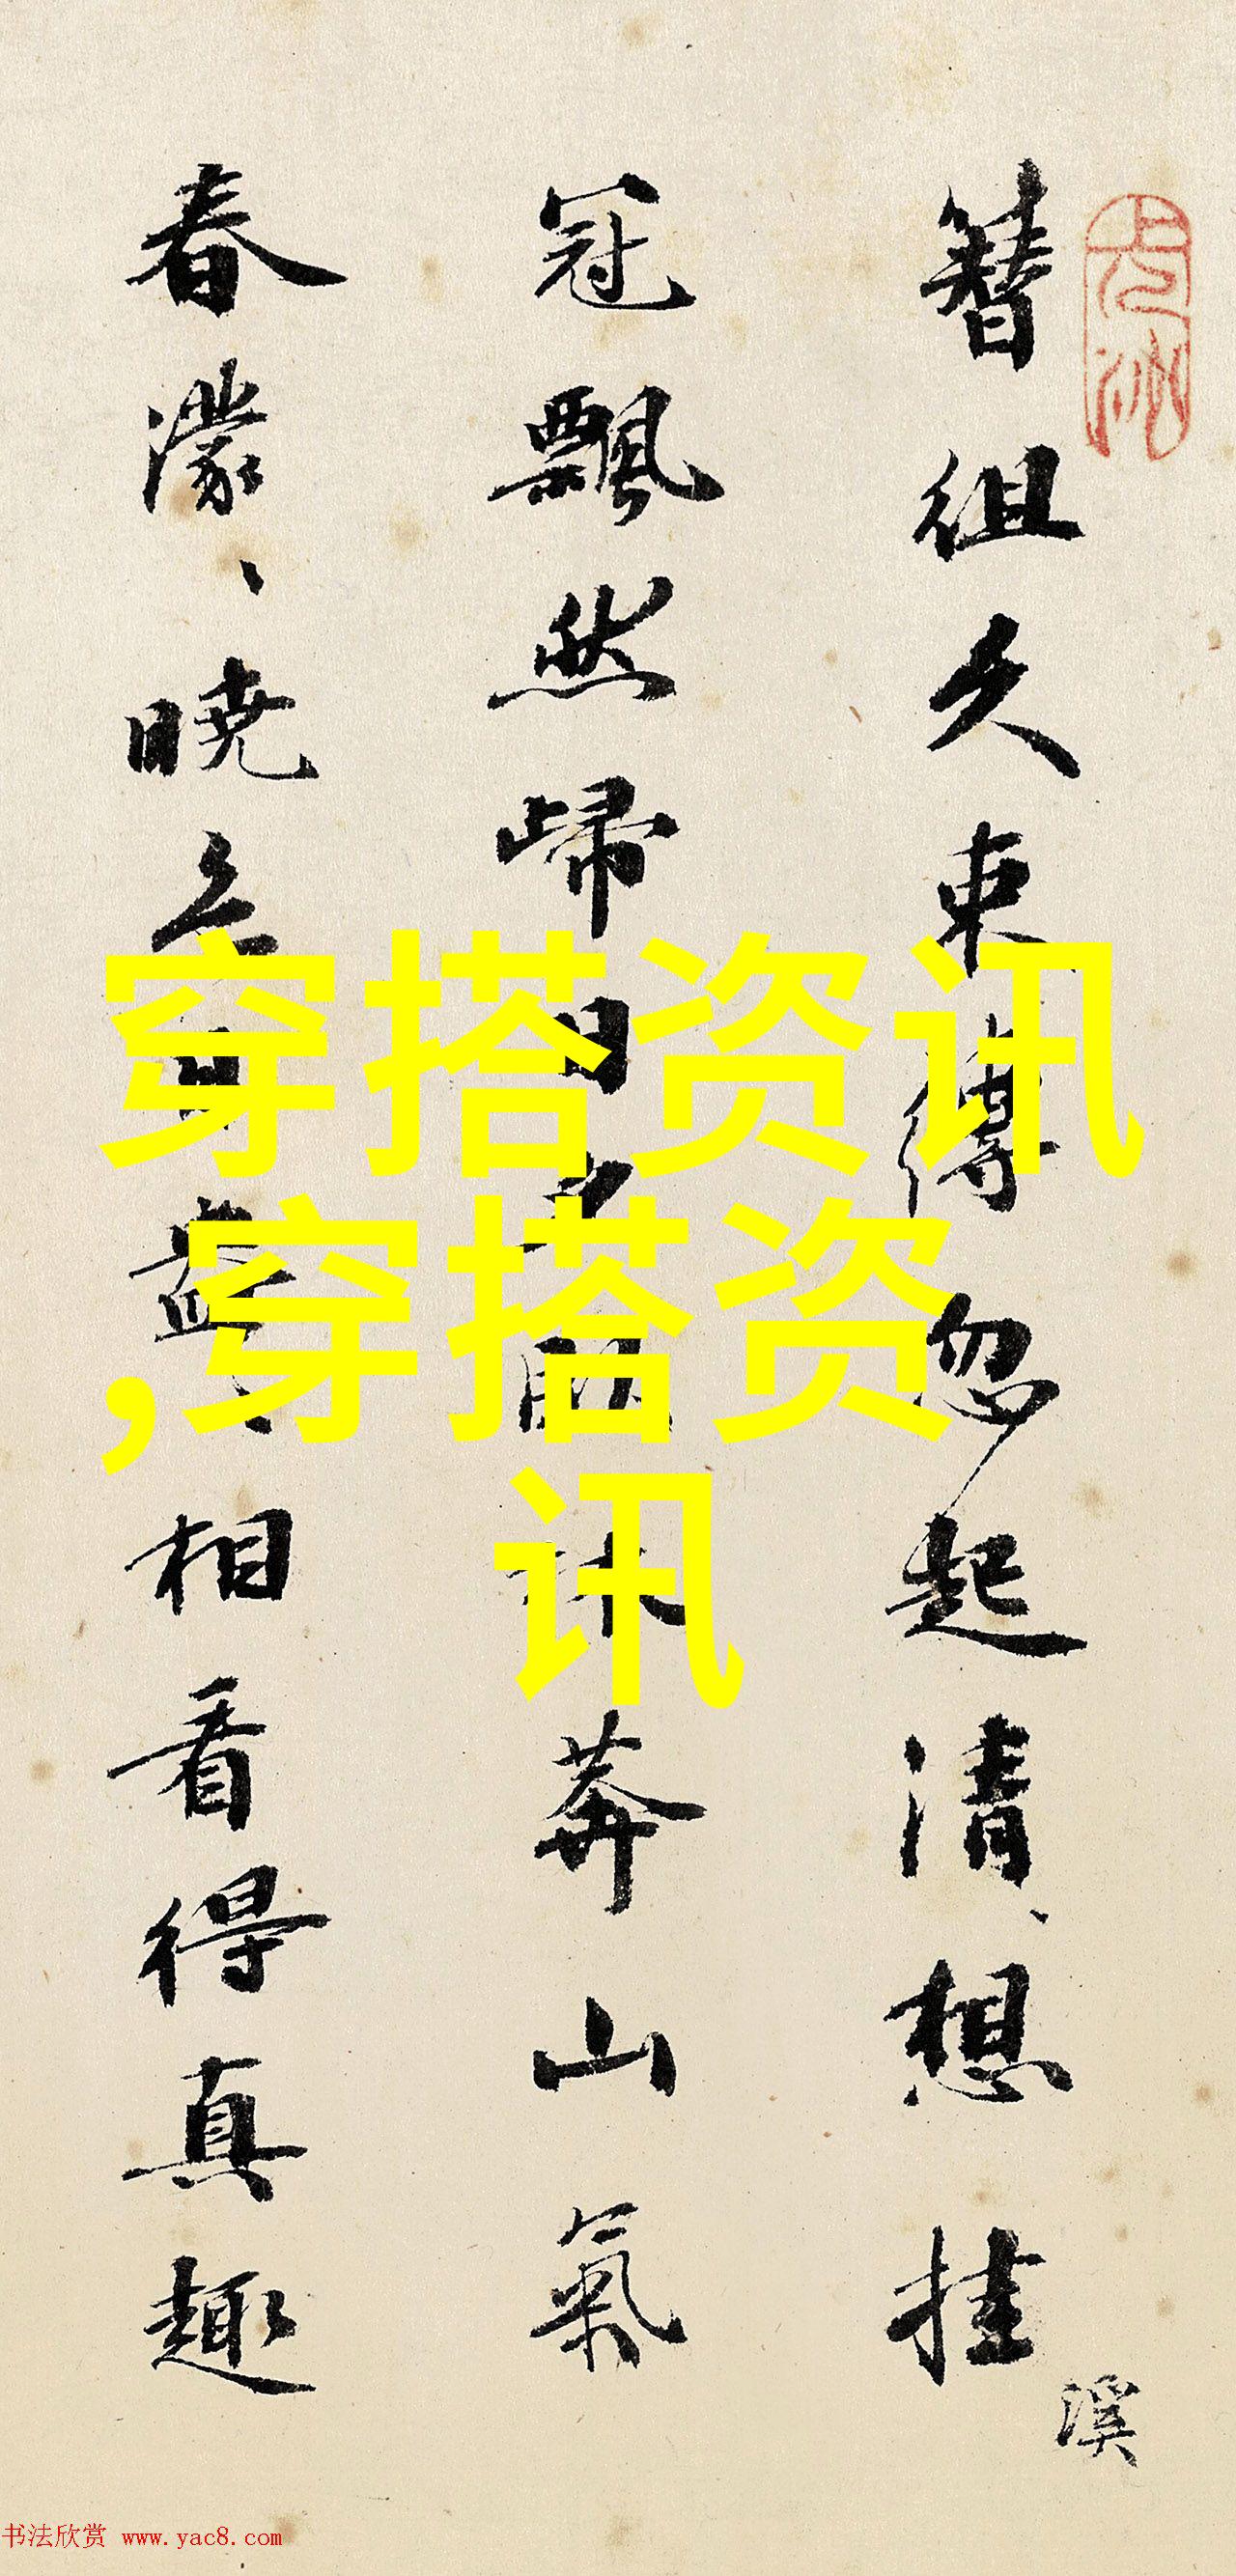 簪组久束缚忽起清、想挂
溪
冠飘然归旧
莽山氣
春濛、晓
相看得真趣
穿搭资讯
,穿搭资
讯
书法欣赏 www.yac8.com